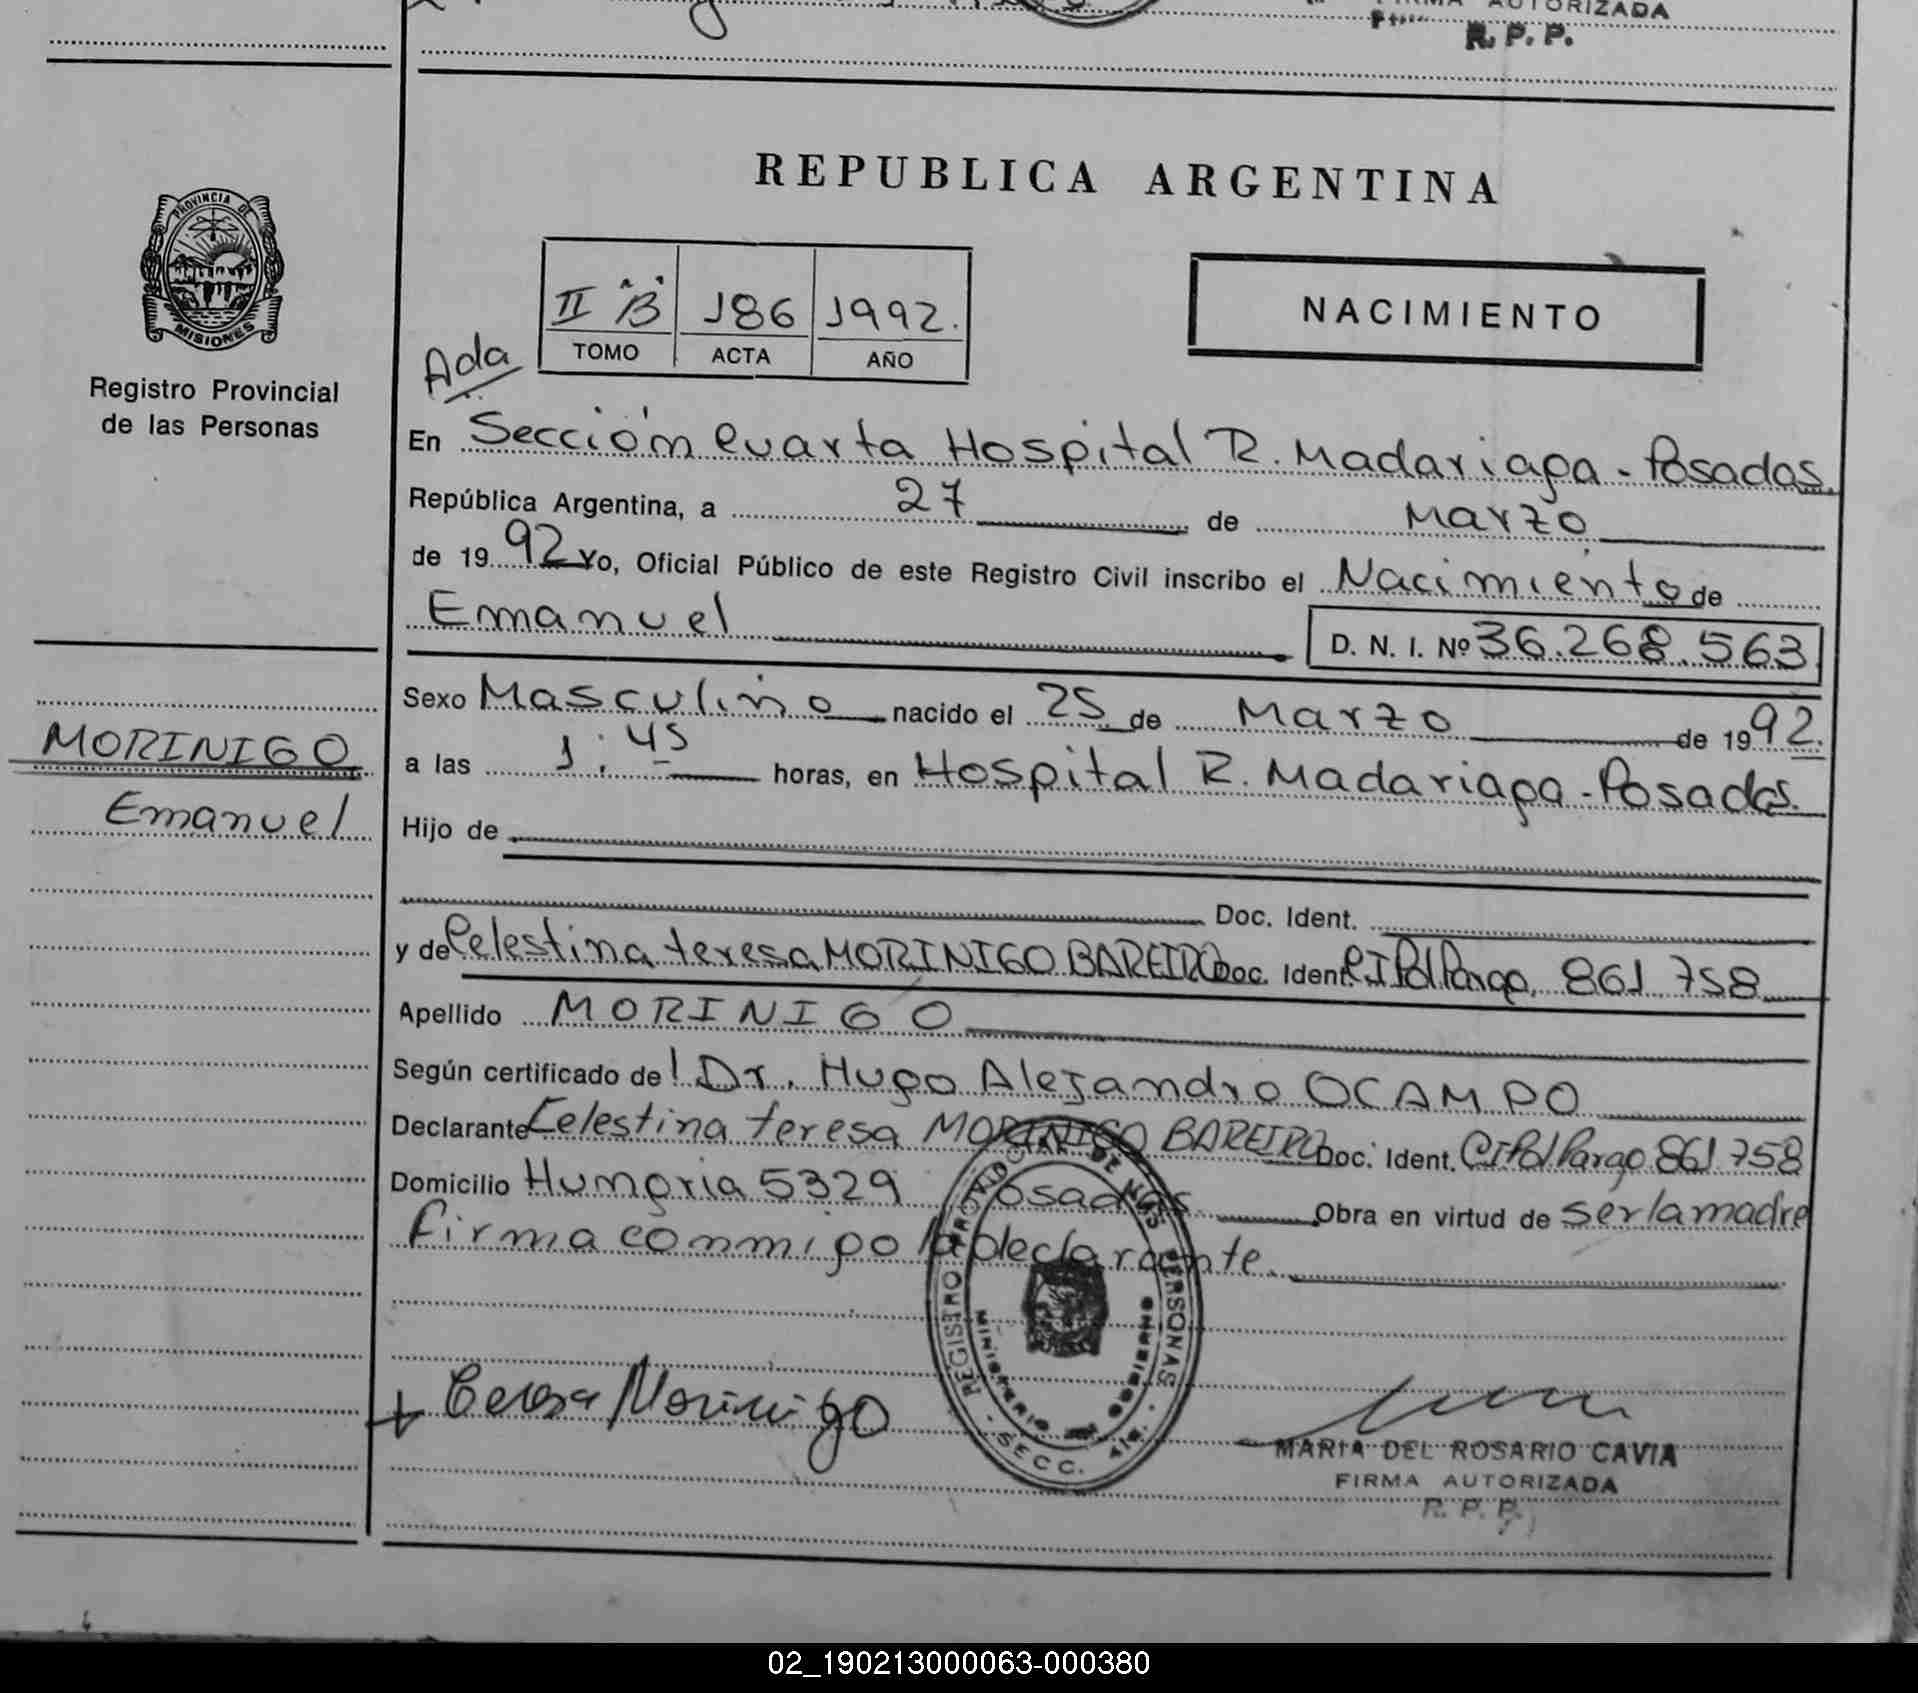 FIRMA AUTORIZADA
R. P. P.
REPUBLICA ARGENTINA
PROVINCIA DE
MISIONES
Registro Provincial
de las Personas
II "B" 186 1992.
TOMO ACTA AÑO
NACIMIENTO
Ada
En Sección Cuarta Hospital R. Madariaga - Posadas.
República Argentina, a 27 de Marzo
de 1992 Yo, Oficial Público de este Registro Civil inscribo el Nacimiento de
Emanuel D. N. I. Nº 36.268.563
Sexo Masculino nacido el 25 de Marzo de 1992.
MORINIGO
a las 1:45 horas, en Hospital R. Madariaga - Posadas.
Emanuel
Hijo de
Doc. Ident.
y de Celestina teresa MORINIGO BAREIRO Doc. Ident. CI Pol Parag. 861 758
Apellido MORINIGO
Según certificado del Dr. Hugo Alejandro OCAMPO
Declarante Celestina teresa MORINIGO BAREIRO Doc. Ident. CI Pol Parag 861 758
Domicilio Hungria 5329 Posadas Obra en virtud de ser la madre
firma conmigo la declarante.
REGISTRO PROVINCIAL DE LAS PERSONAS
MINISTERIO DE GOBIERNO
SECC. 4ta.
+ Teresa Morinigo
MARIA DEL ROSARIO CAVIA
FIRMA AUTORIZADA
R. P. P.
02_190213000063-000380